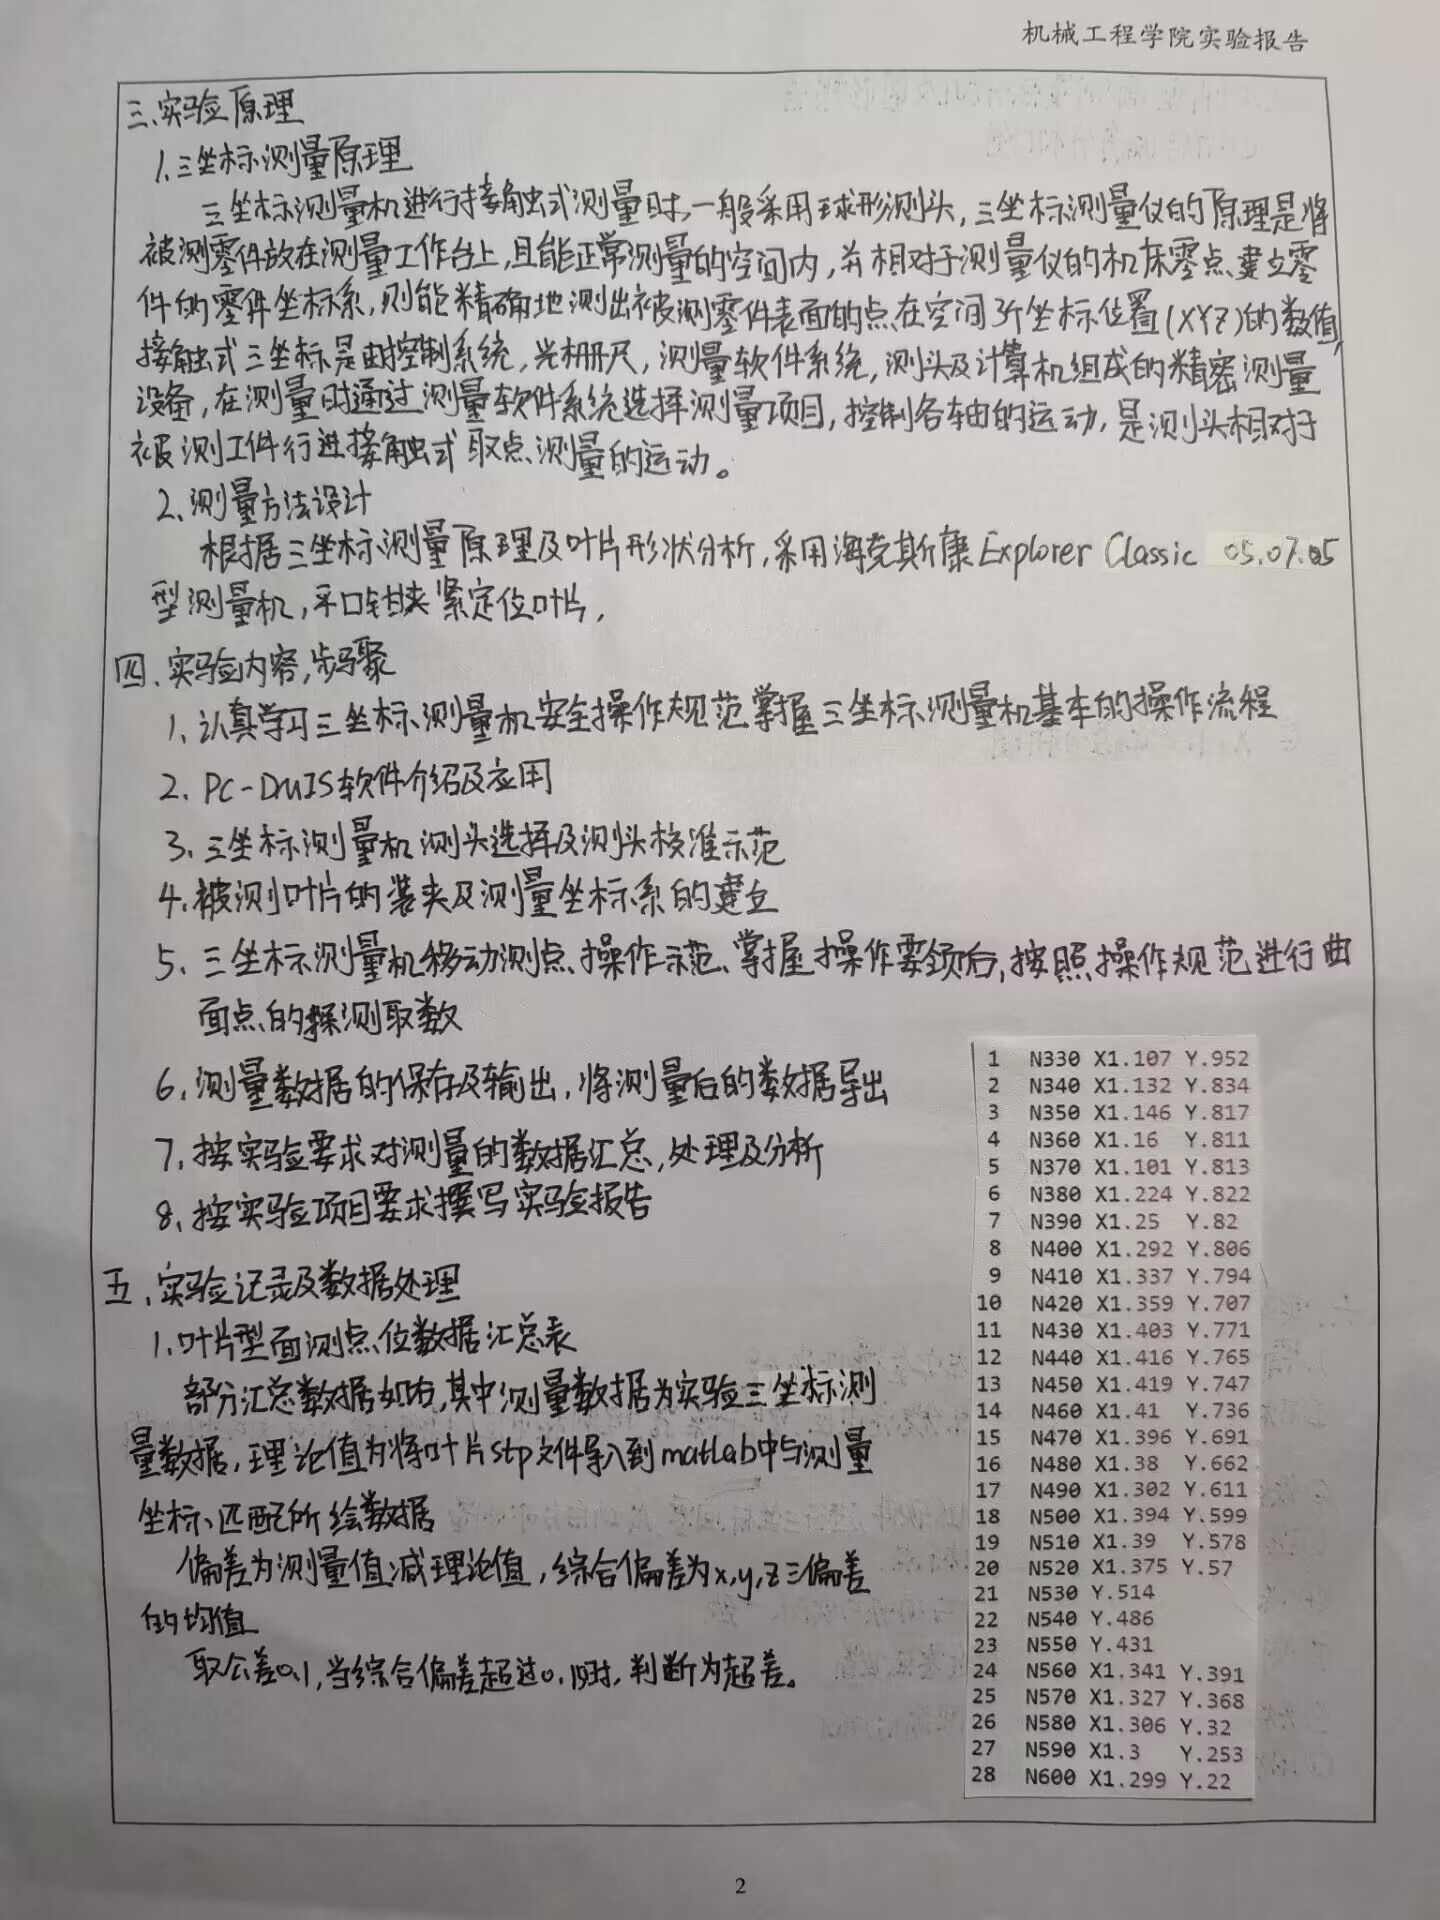 机械工程学院实验报告
三、实验原理
1、三坐标测量原理
三坐标测量机进行接触式测量时,一般采用球形测头,三坐标测量仪的原理是将
被测零件放在测量工作台上,且能正常测量的空间内,并相对于测量仪的机床零点、建立零
件的零件坐标系,则能精确地测出被测零件表面的点在空间3个坐标位置(XYZ)的数值,
接触式三坐标是由控制系统,光栅尺,测量软件系统,测头及计算机组成的精密测量
设备,在测量时通过测量软件系统选择测量项目,控制各轴的运动,是测头相对于
被测工件行进接触式取点测量的运动。
2、测量方法设计
根据三坐标测量原理及叶片形状分析,采用海克斯康Explorer Classic 05.07.05
型测量机,平口钳夹紧定位叶片,
四、实验内容,步骤
1、认真学习三坐标测量机安全操作规范掌握三坐标测量机基本的操作流程
2、PC-DMIS软件介绍及应用
3、三坐标测量机测头选择及测头校准示范
4、被测叶片的装夹及测量坐标系的建立
5、三坐标测量机移动测点操作示范、掌握操作要领后,按照操作规范进行曲
面点的探测取数
6、测量数据的保存及输出,将测量后的数据导出
7、按实验要求对测量的数据汇总,处理及分析
8、按实验项目要求撰写实验报告
五、实验记录及数据处理
1、叶片型面测点位数据汇总表
部分汇总数据如右,其中测量数据为实验三坐标测
量数据,理论值为将叶片stp文件导入到matlab中与测量
坐标匹配所绘数据
偏差为测量值减理论值,综合偏差为x,y,z三偏差
的均值
取公差0.1,当综合偏差超过0.1时,判断为超差。
1 N330 X1.107 Y.952
2 N340 X1.132 Y.834
3 N350 X1.146 Y.817
4 N360 X1.16 Y.811
5 N370 X1.101 Y.813
6 N380 X1.224 Y.822
7 N390 X1.25 Y.82
8 N400 X1.292 Y.806
9 N410 X1.337 Y.794
10 N420 X1.359 Y.707
11 N430 X1.403 Y.771
12 N440 X1.416 Y.765
13 N450 X1.419 Y.747
14 N460 X1.41 Y.736
15 N470 X1.396 Y.691
16 N480 X1.38 Y.662
17 N490 X1.302 Y.611
18 N500 X1.394 Y.599
19 N510 X1.39 Y.578
20 N520 X1.375 Y.57
21 N530 Y.514
22 N540 Y.486
23 N550 Y.431
24 N560 X1.341 Y.391
25 N570 X1.327 Y.368
26 N580 X1.306 Y.32
27 N590 X1.3 Y.253
28 N600 X1.299 Y.22
2